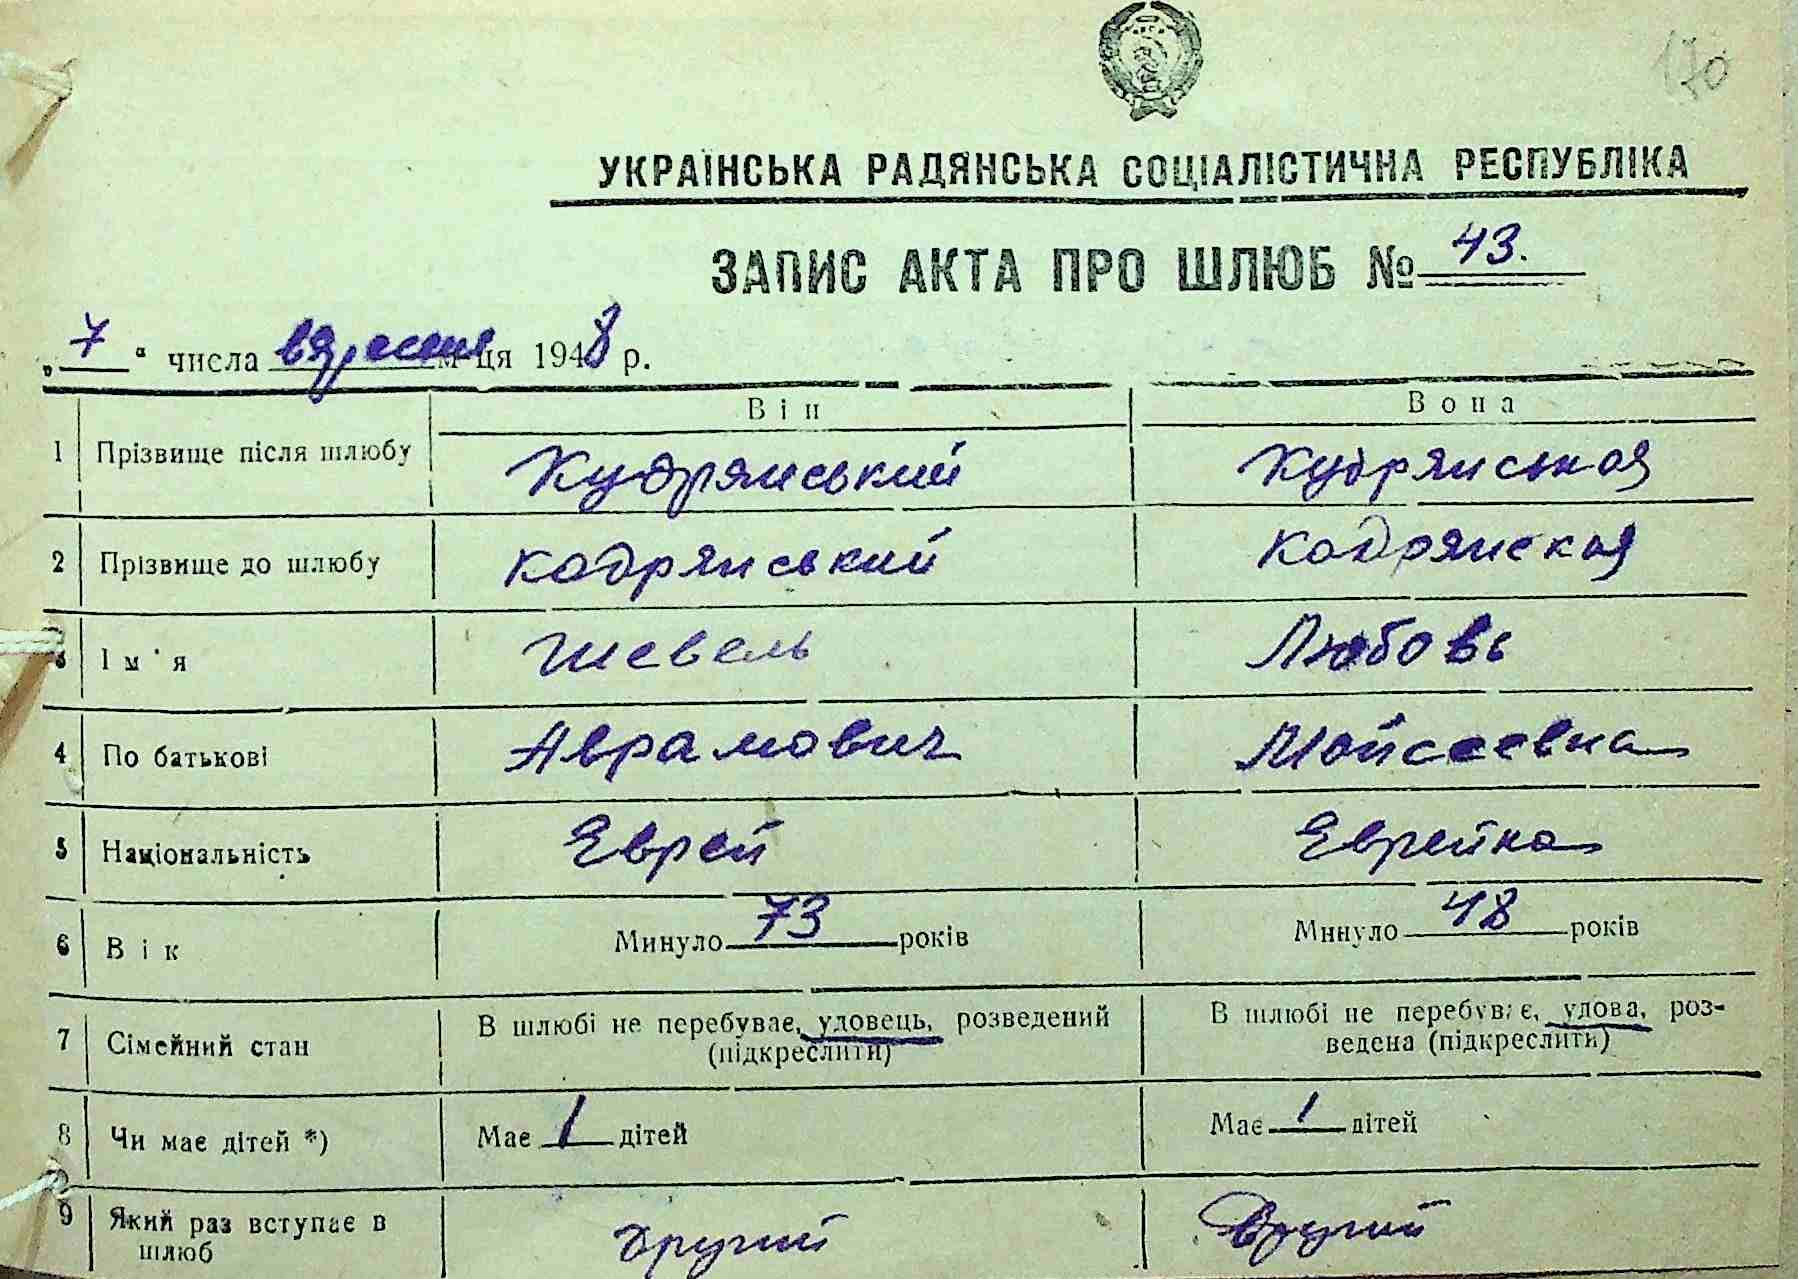 170
УКРАЇНСЬКА РАДЯНСЬКА СОЦІАЛІСТИЧНА РЕСПУБЛІКА
ЗАПИС АКТА ПРО ШЛЮБ № 43.
„7“ числа вересня м-ця 1948 р.
Він Вона
1 Прізвище після шлюбу Кудрянський Кудрянськая
2 Прізвище до шлюбу Кодрянський Кодрянская
3 Ім'я Шевель Любовь
4 По батькові Аврамович Мойсеевна
5 Національність Еврей Еврейка
6 Вік Минуло 73 років Минуло 48 років
7 Сімейний стан В шлюбі не перебуває, удовець, розведений (підкреслити) В шлюбі не перебуває, удова, роз-
ведена (підкреслити)
8 Чи має дітей *) Має 1 дітей Має 1 дітей
9 Який раз вступає в шлюб другий другий